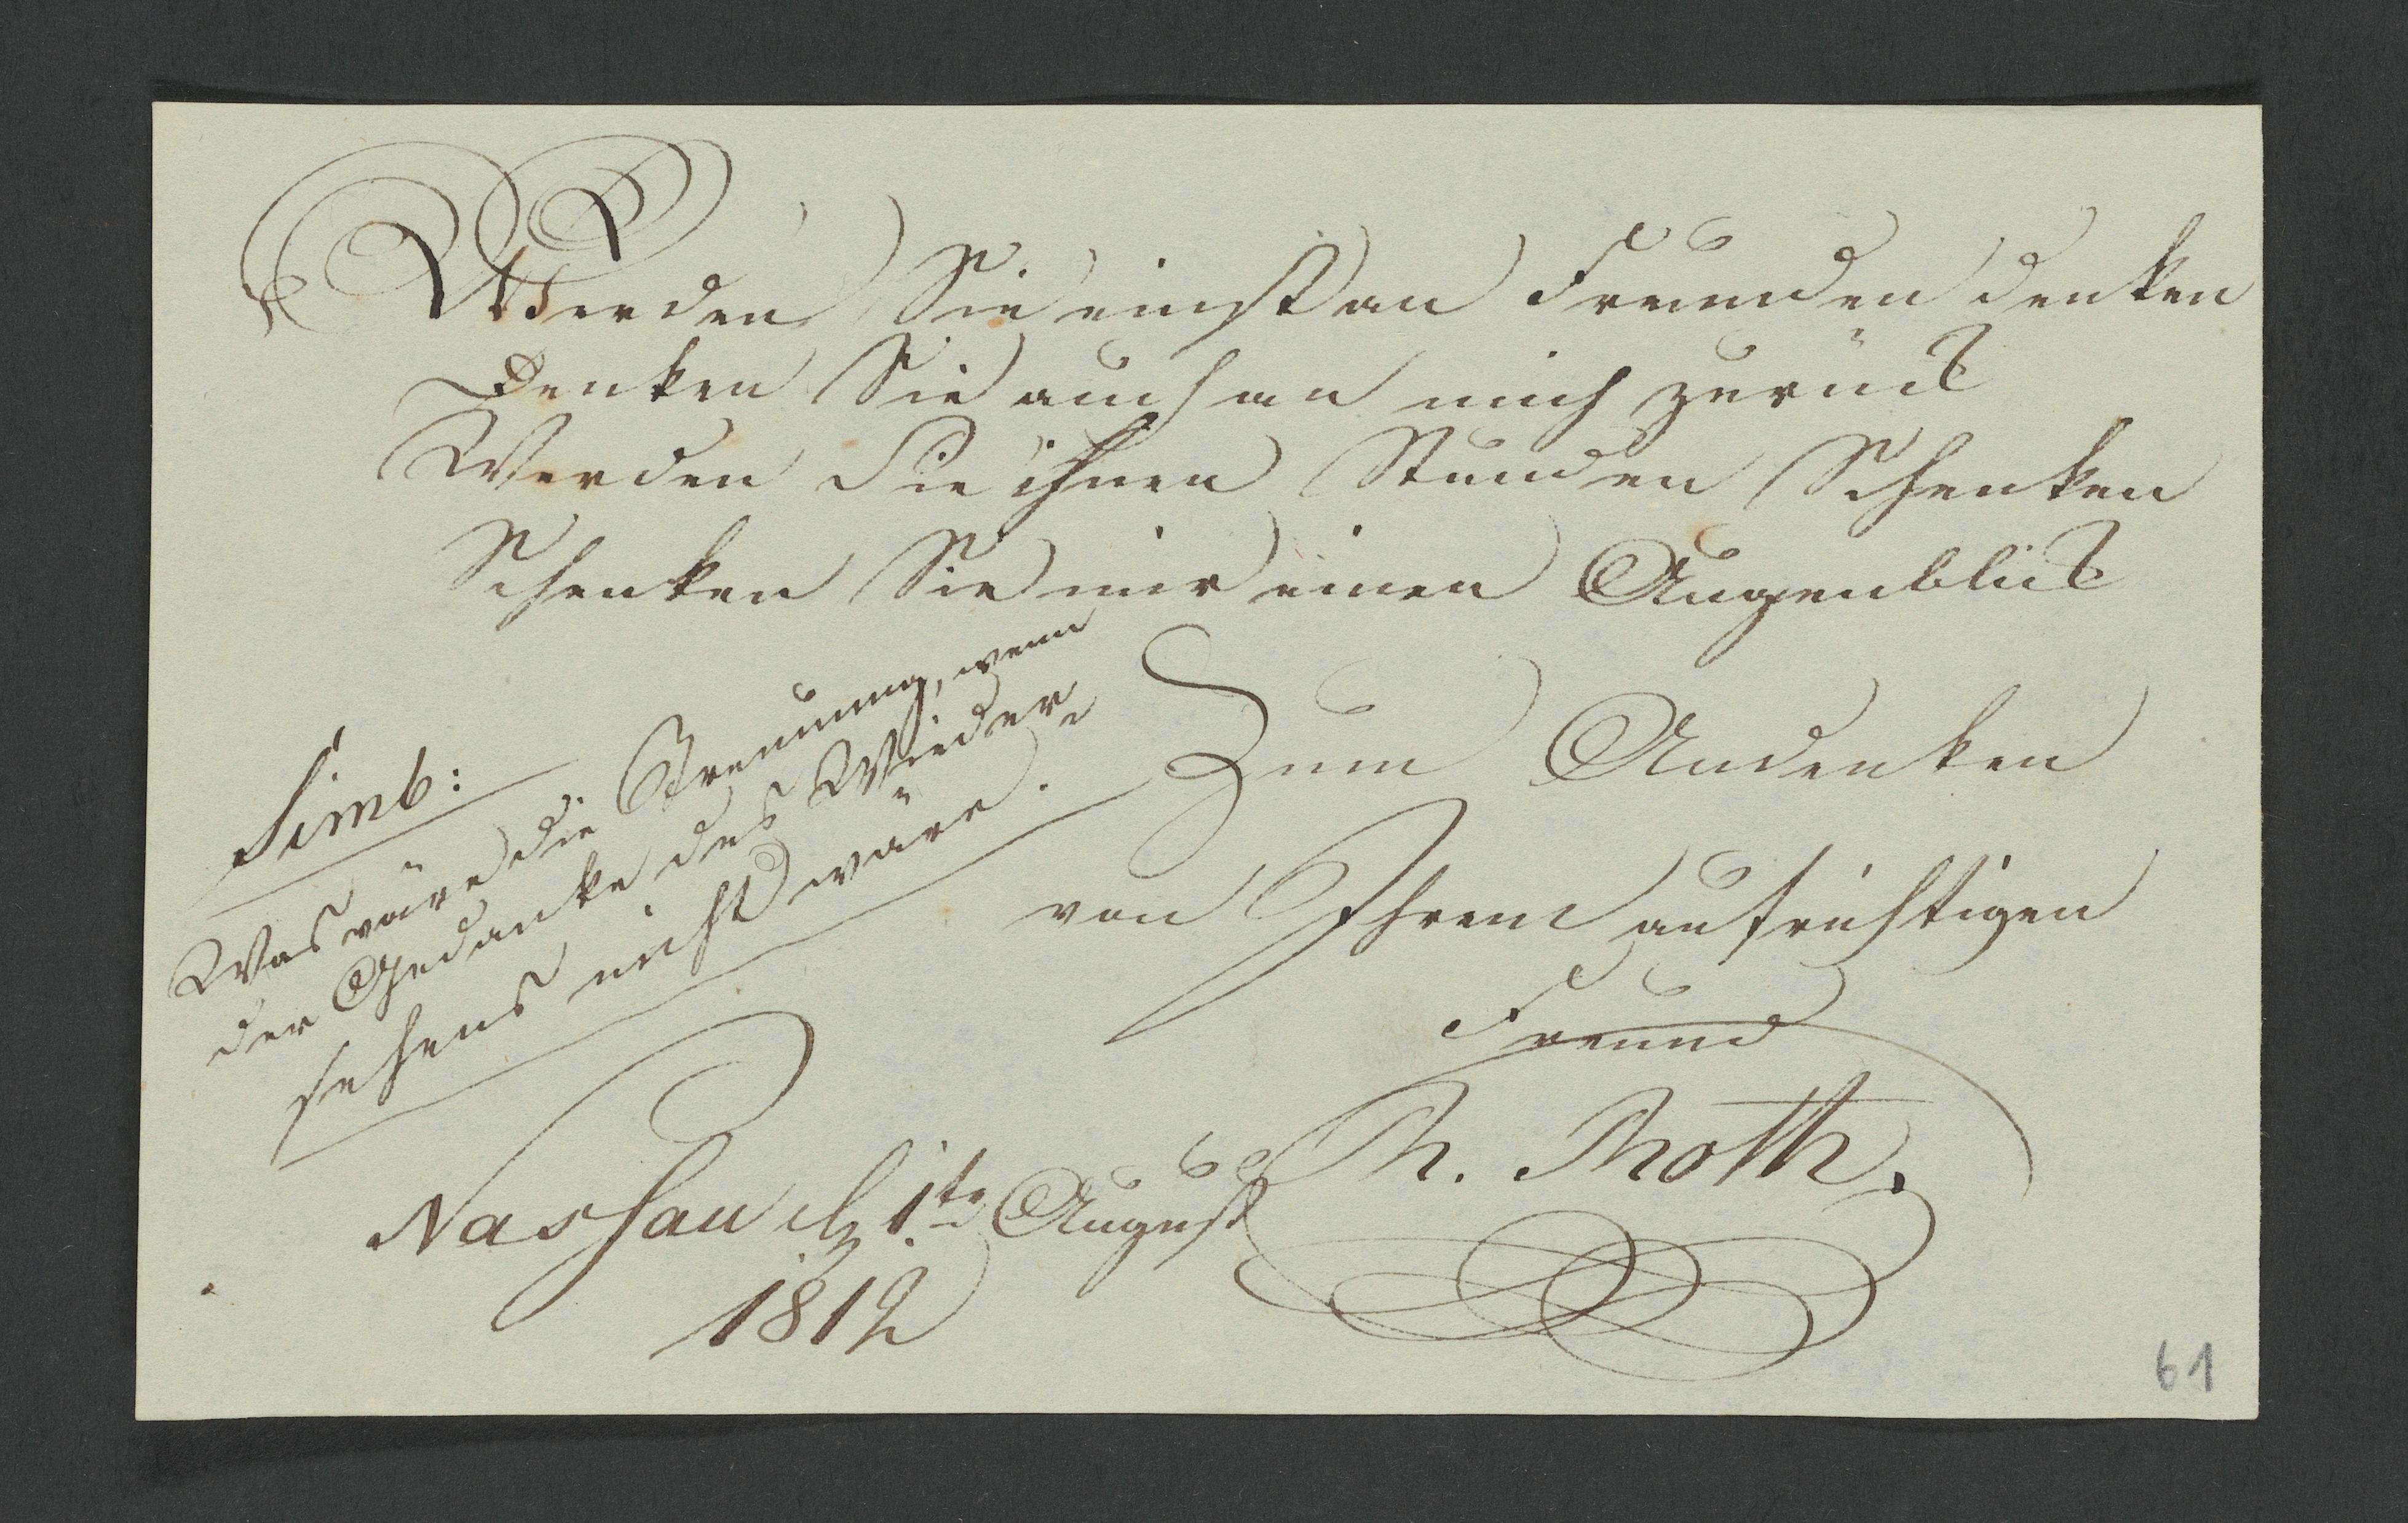 Werden Sie einst an Freunden denken
Denken Sie auch an mich zurück
Werden Sie ihnen Stunden Schenken
Schenken Sie mir einen Augenblick
Simb:
Was wäre die Trennung, wenn
der Gedanke des Wieder=
sehens nicht wäre.
Zum Andenken
von Ihrem aufrichtigen
Freund
Th. Thoth.
Nassau d. 1te August
1812
61